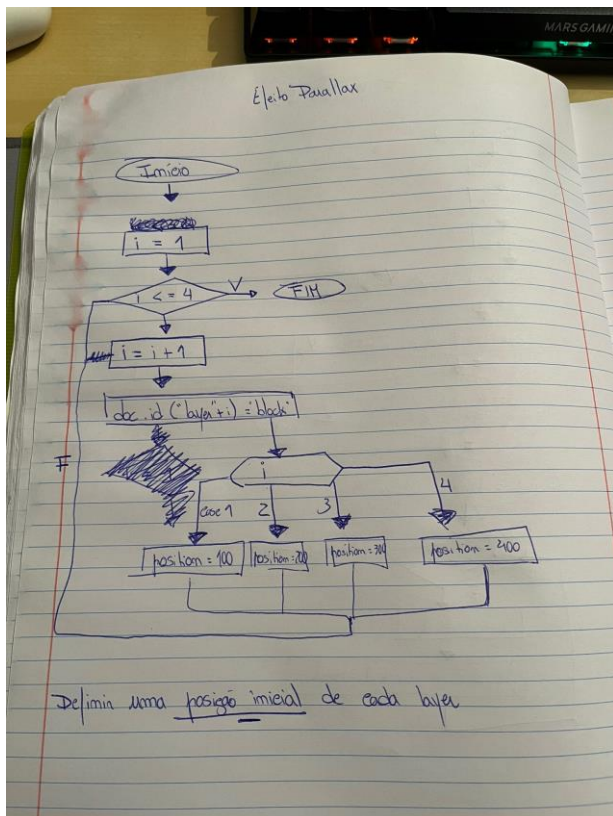 MARS GAMIN
Efeito Parallax
Início
i = 1
i <= 4
V
FIM
i = i + 1
doc.id ("layer"+i) = "block"
F
i
case 1
2
3
4
position = 100
position = 200
position = 300
position = 400
Definir uma posição inicial de cada layer